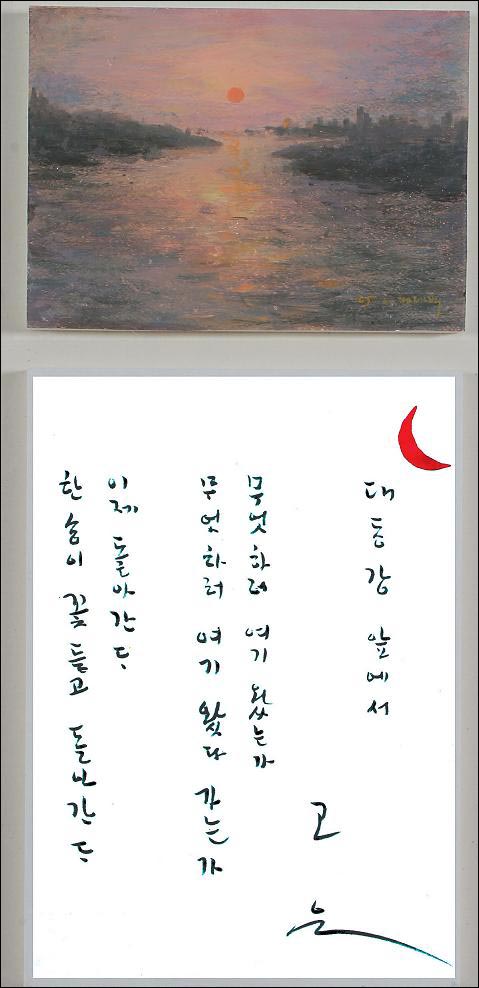 대동강 앞에서
고은
무엇하러 여기 왔는가
무엇하러 여기 왔다 가는가
이제 돌아간 듯
한 송이 꽃 들고 돌아간 듯